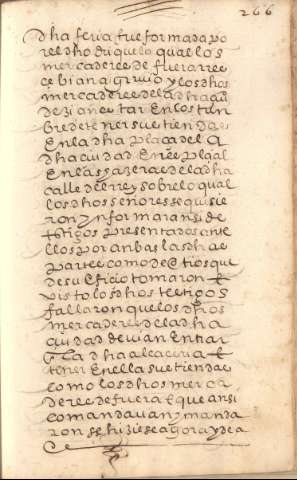 266
dha feria fue formada po
rel dho duque lo qual los
mercaderes de fuera rre
cebian agravio y los dhos
mercaderes de la dha çiu
en la dha plaça del
dha ciudad
en las y açera de la dha
calle del rrey sobre lo qual
los dhos señores se quisie
ron ynformar ansi de
testigos presentados ante
ellos por anbas las dhas
partes como de otros que
de su oficio tomaron e
visto los dhos testigos
fallaron que los dhos
mercaderes de la dha
çiudad devian entrar
a la dha alcaçeria e
tener en ella sus tiendas
como los dhos merca
deres de fuera e que ansi
lo mandavan y manda
ron se hiziese agora y de a